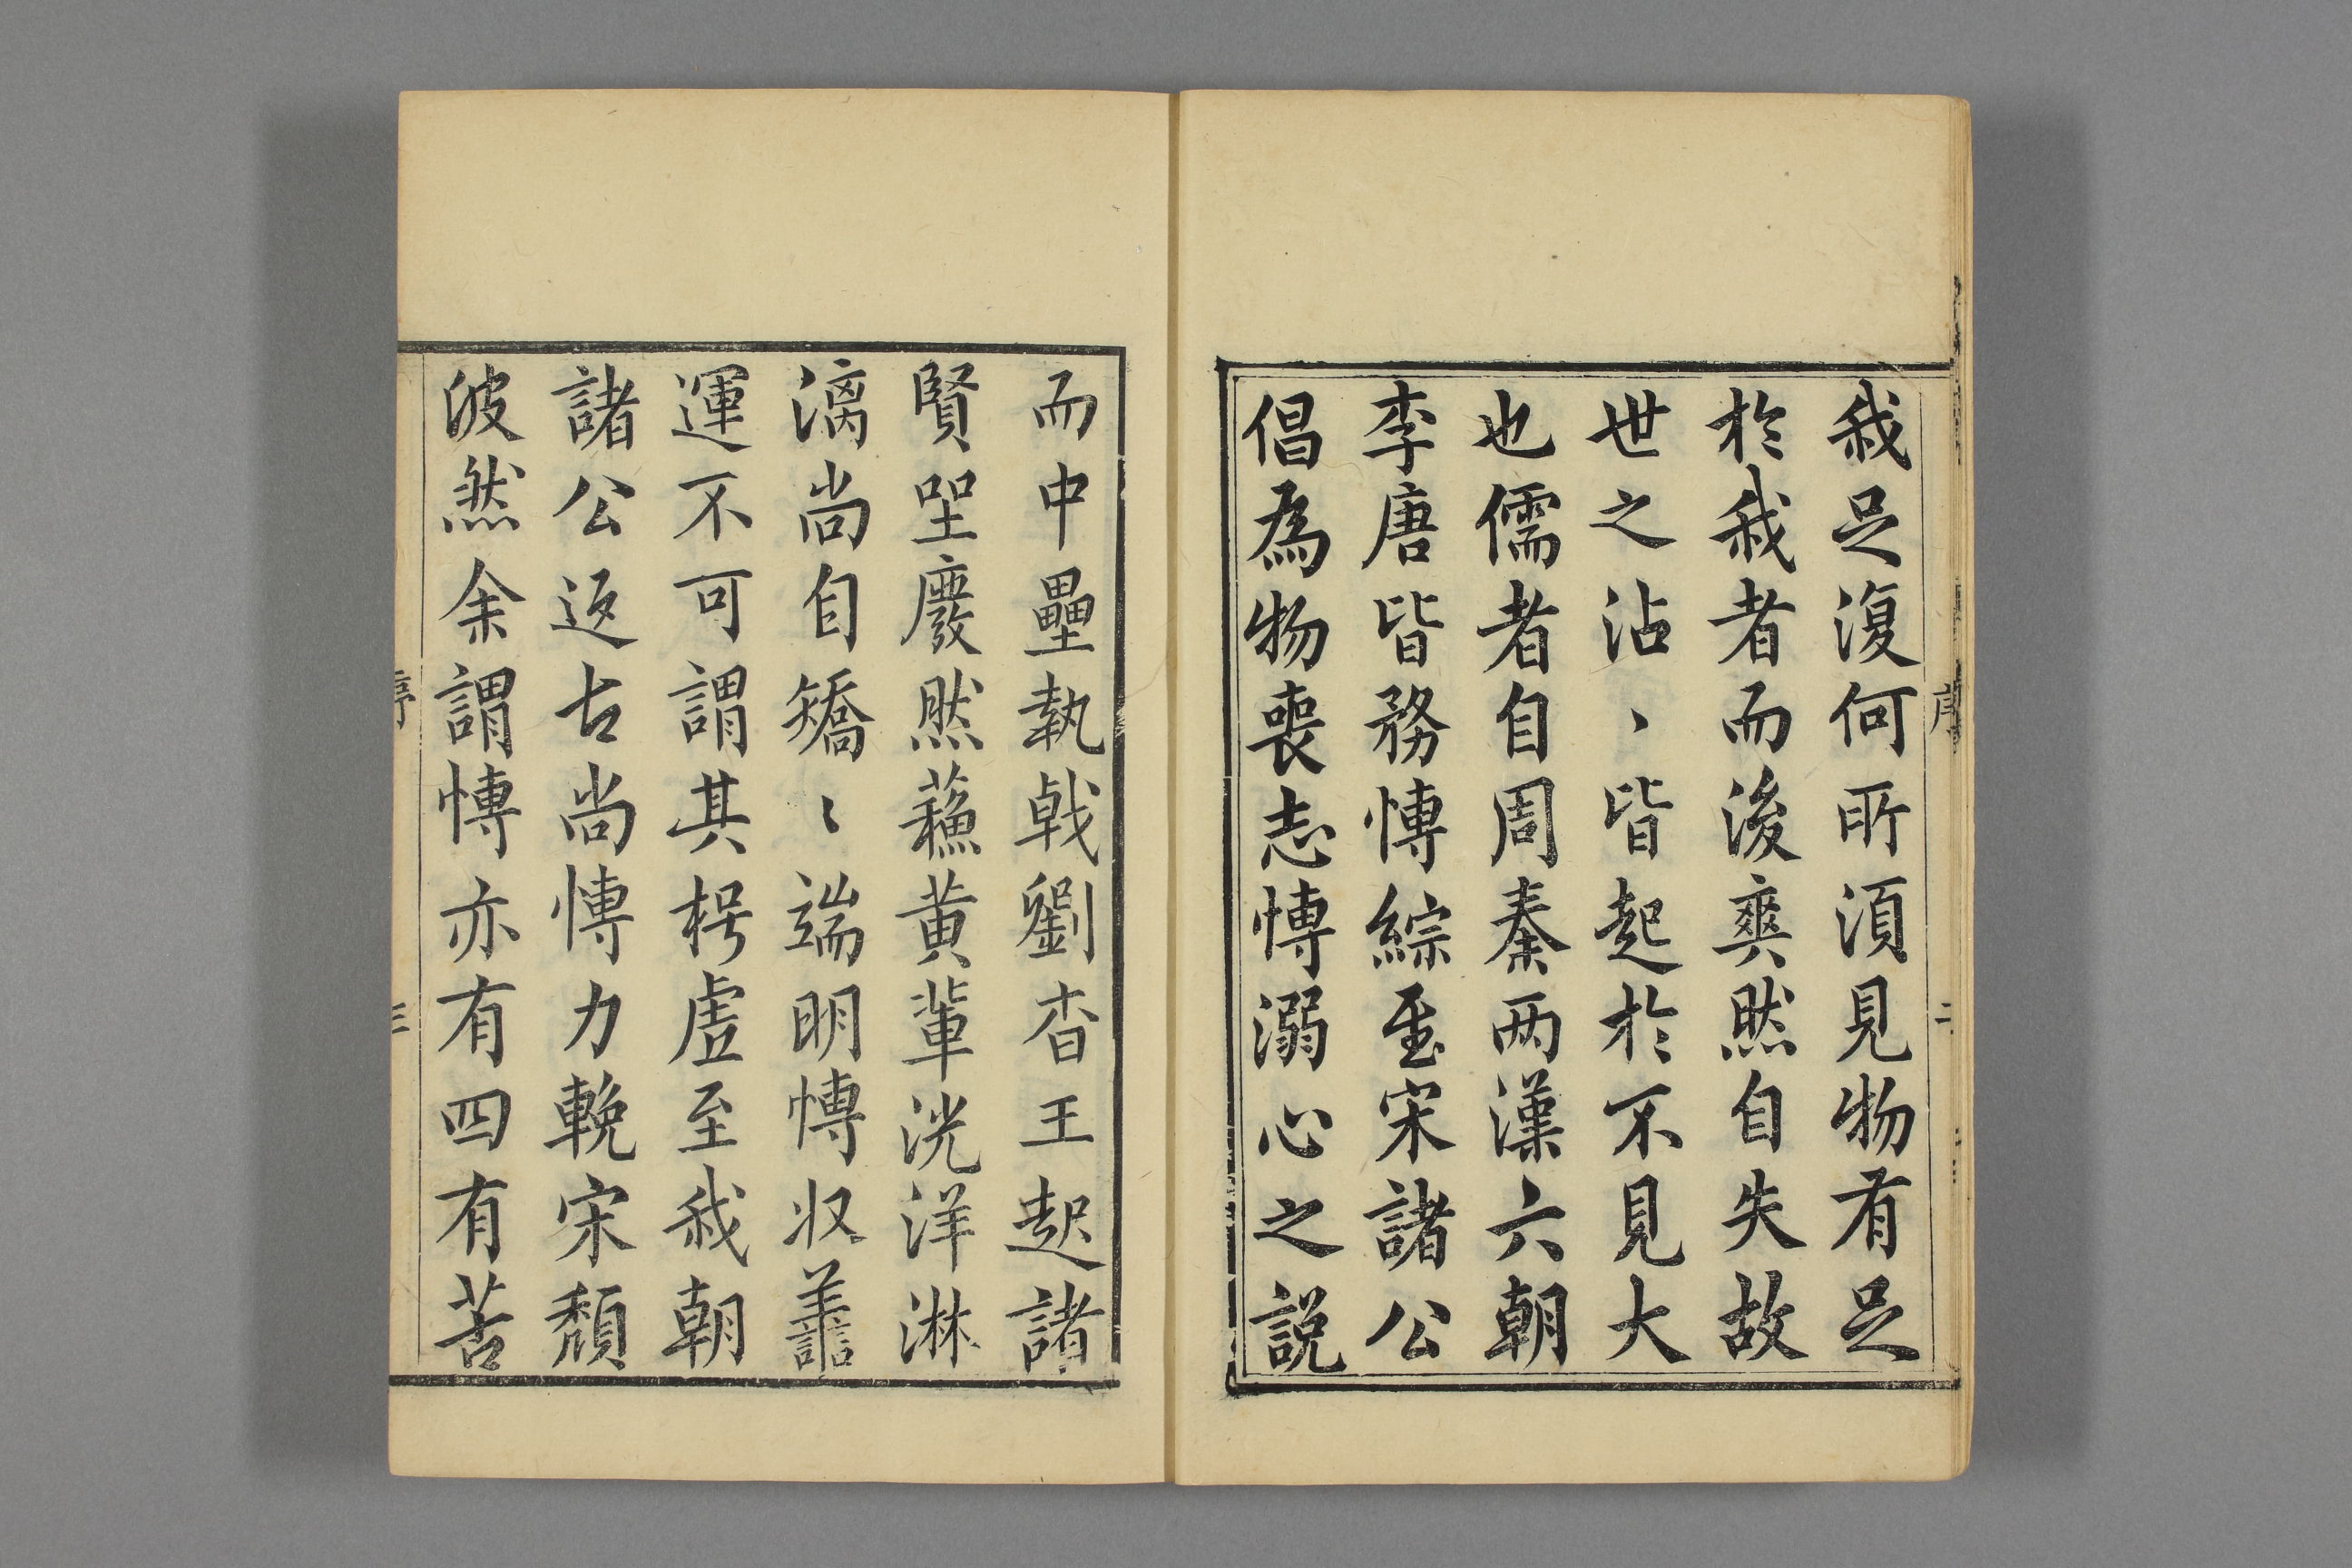 序
二
我足復何所須見物有足
於我者而後爽然自失故
世之沾、皆起於不見大
也儒者自周秦兩漢六朝
李唐皆務愽綜至宋諸公
倡為物喪志愽溺心之說
而中壘執戟劉杳王起諸
賢坐廢然蘓黄輩洸洋淋
漓尚自矯〻端明愽収譱
運不可謂其枵虗至我朝
諸公返古尚愽力輓宋頹
波然余謂愽亦有四有苦
序
三